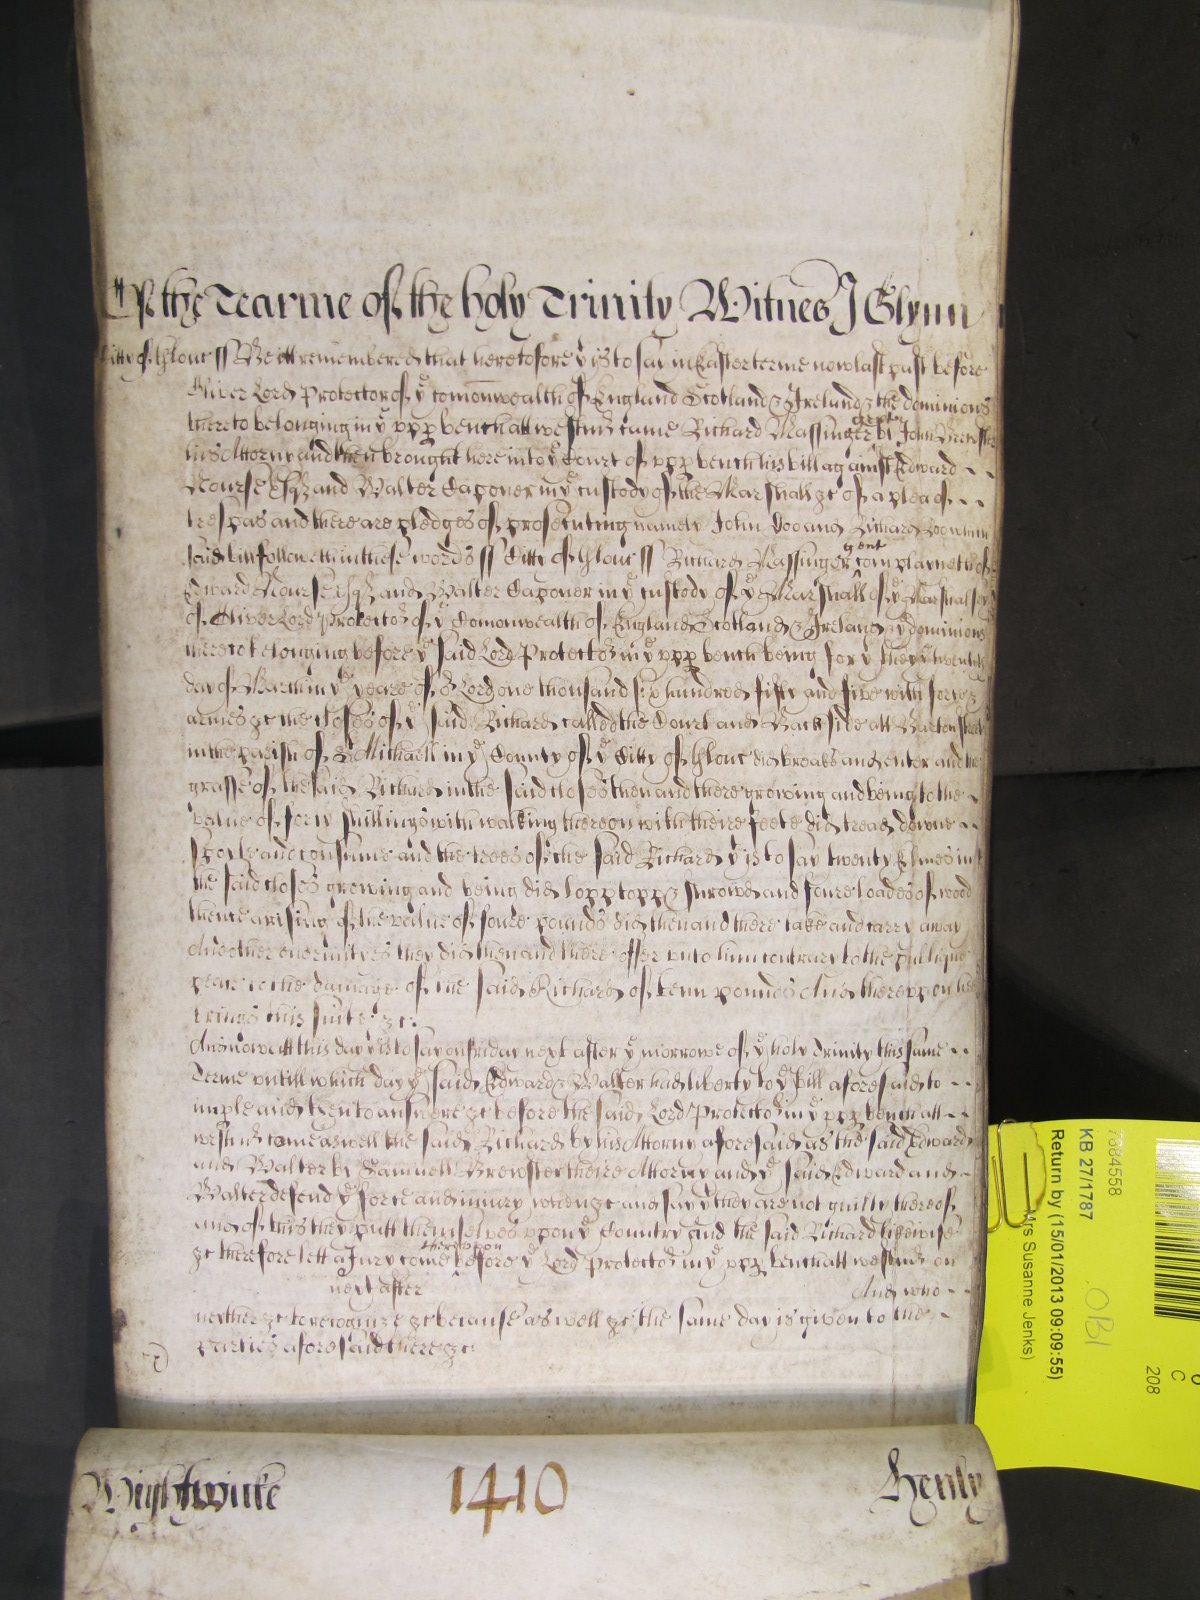 Of the Tearme of the holy Trinity Witnes J Glynn
Citty of Glouc ss Be itt remembered that heretofore yt is to say in Easter terme now last past before
Oliver Lord Protector of ye Comonwealth of England Scotland & Ireland & the dominions
thereto belonging in ye upp bench att Westmr came Richard Massinger gent by John Brewster
his Attorny and then brought here into ye Court of upp bench his bill against Edward
Nourse Esqr and Walter Caponer in ye custody of the Marshall &c of a plea of
trespas and there are pledges of prosecuting namely John Doo and Richard Roo which
said bill followeth in these words ss Citty of Glouc ss Richard Massinger gent complayneth of
Edward Nourse Esqr and Walter Caponer in ye custody of ye Marshall of ye Marshalsey
of Oliver Lord Protector of ye Comonwealth of England Scotland & Ireland & ye dominions
thereto belonging before ye said Lord Protector in ye upp bench being for yt they ye twentith
day of March in ye yeare of or Lord one thousand six hundred fifty and five with force &
armes &c the closes of ye said Richard called the Court and Backside att Barton Street
in the parish of St Michaell in ye County of ye Citty of Glouc did breake and enter and the
grasse of the said Richard in the said closes then and there growing and being to the
value of forty shillings with walking thereon with theire feete did tread downe
spoyle and consume and the trees of the said Richard yt is to say twenty Elmes in
the said closes growing and being did lopp topp & shrowd and foure loades of wood
thence arising of the value of foure pounds did then and there take and carry away
And other enormityes they did then and there offer unto him contrary to the publique
peace to the damage of the said Richard of tenn pounds And thereuppon he
brings this suite &c:
And now att this day yt is to say on Friday next after ye morrowe of ye holy Trinity this same
Terme untill which day ye said Edward & Walter had liberty to ye bill aforesaid to
imple and then to answere &c before the said Lord Protector in ye upp bench att
Westmr come as well the said Richard by his Attorny aforesaid as the said Edward
and Walter by Samuell Brewster theire Attorny and ye said Edward and
Walter defend ye force and injury when &c and say yt they are not guilty thereof
and of this they putt themselves upon ye Country and the said Richard likewise
&c therefore lett a Jury come thereuppon before ye Lord Protector in ye upp bench att Westmr on
next after And who
neyther &c to recognize &c because as well &c the same day is given to the
parties aforesaid there &c:
Wightwicke 1410 Henly
7884558
KB 27/1787
Return by (15/01/2013 09:09:55)
Mrs Susanne Jenks)
OBI
C
208